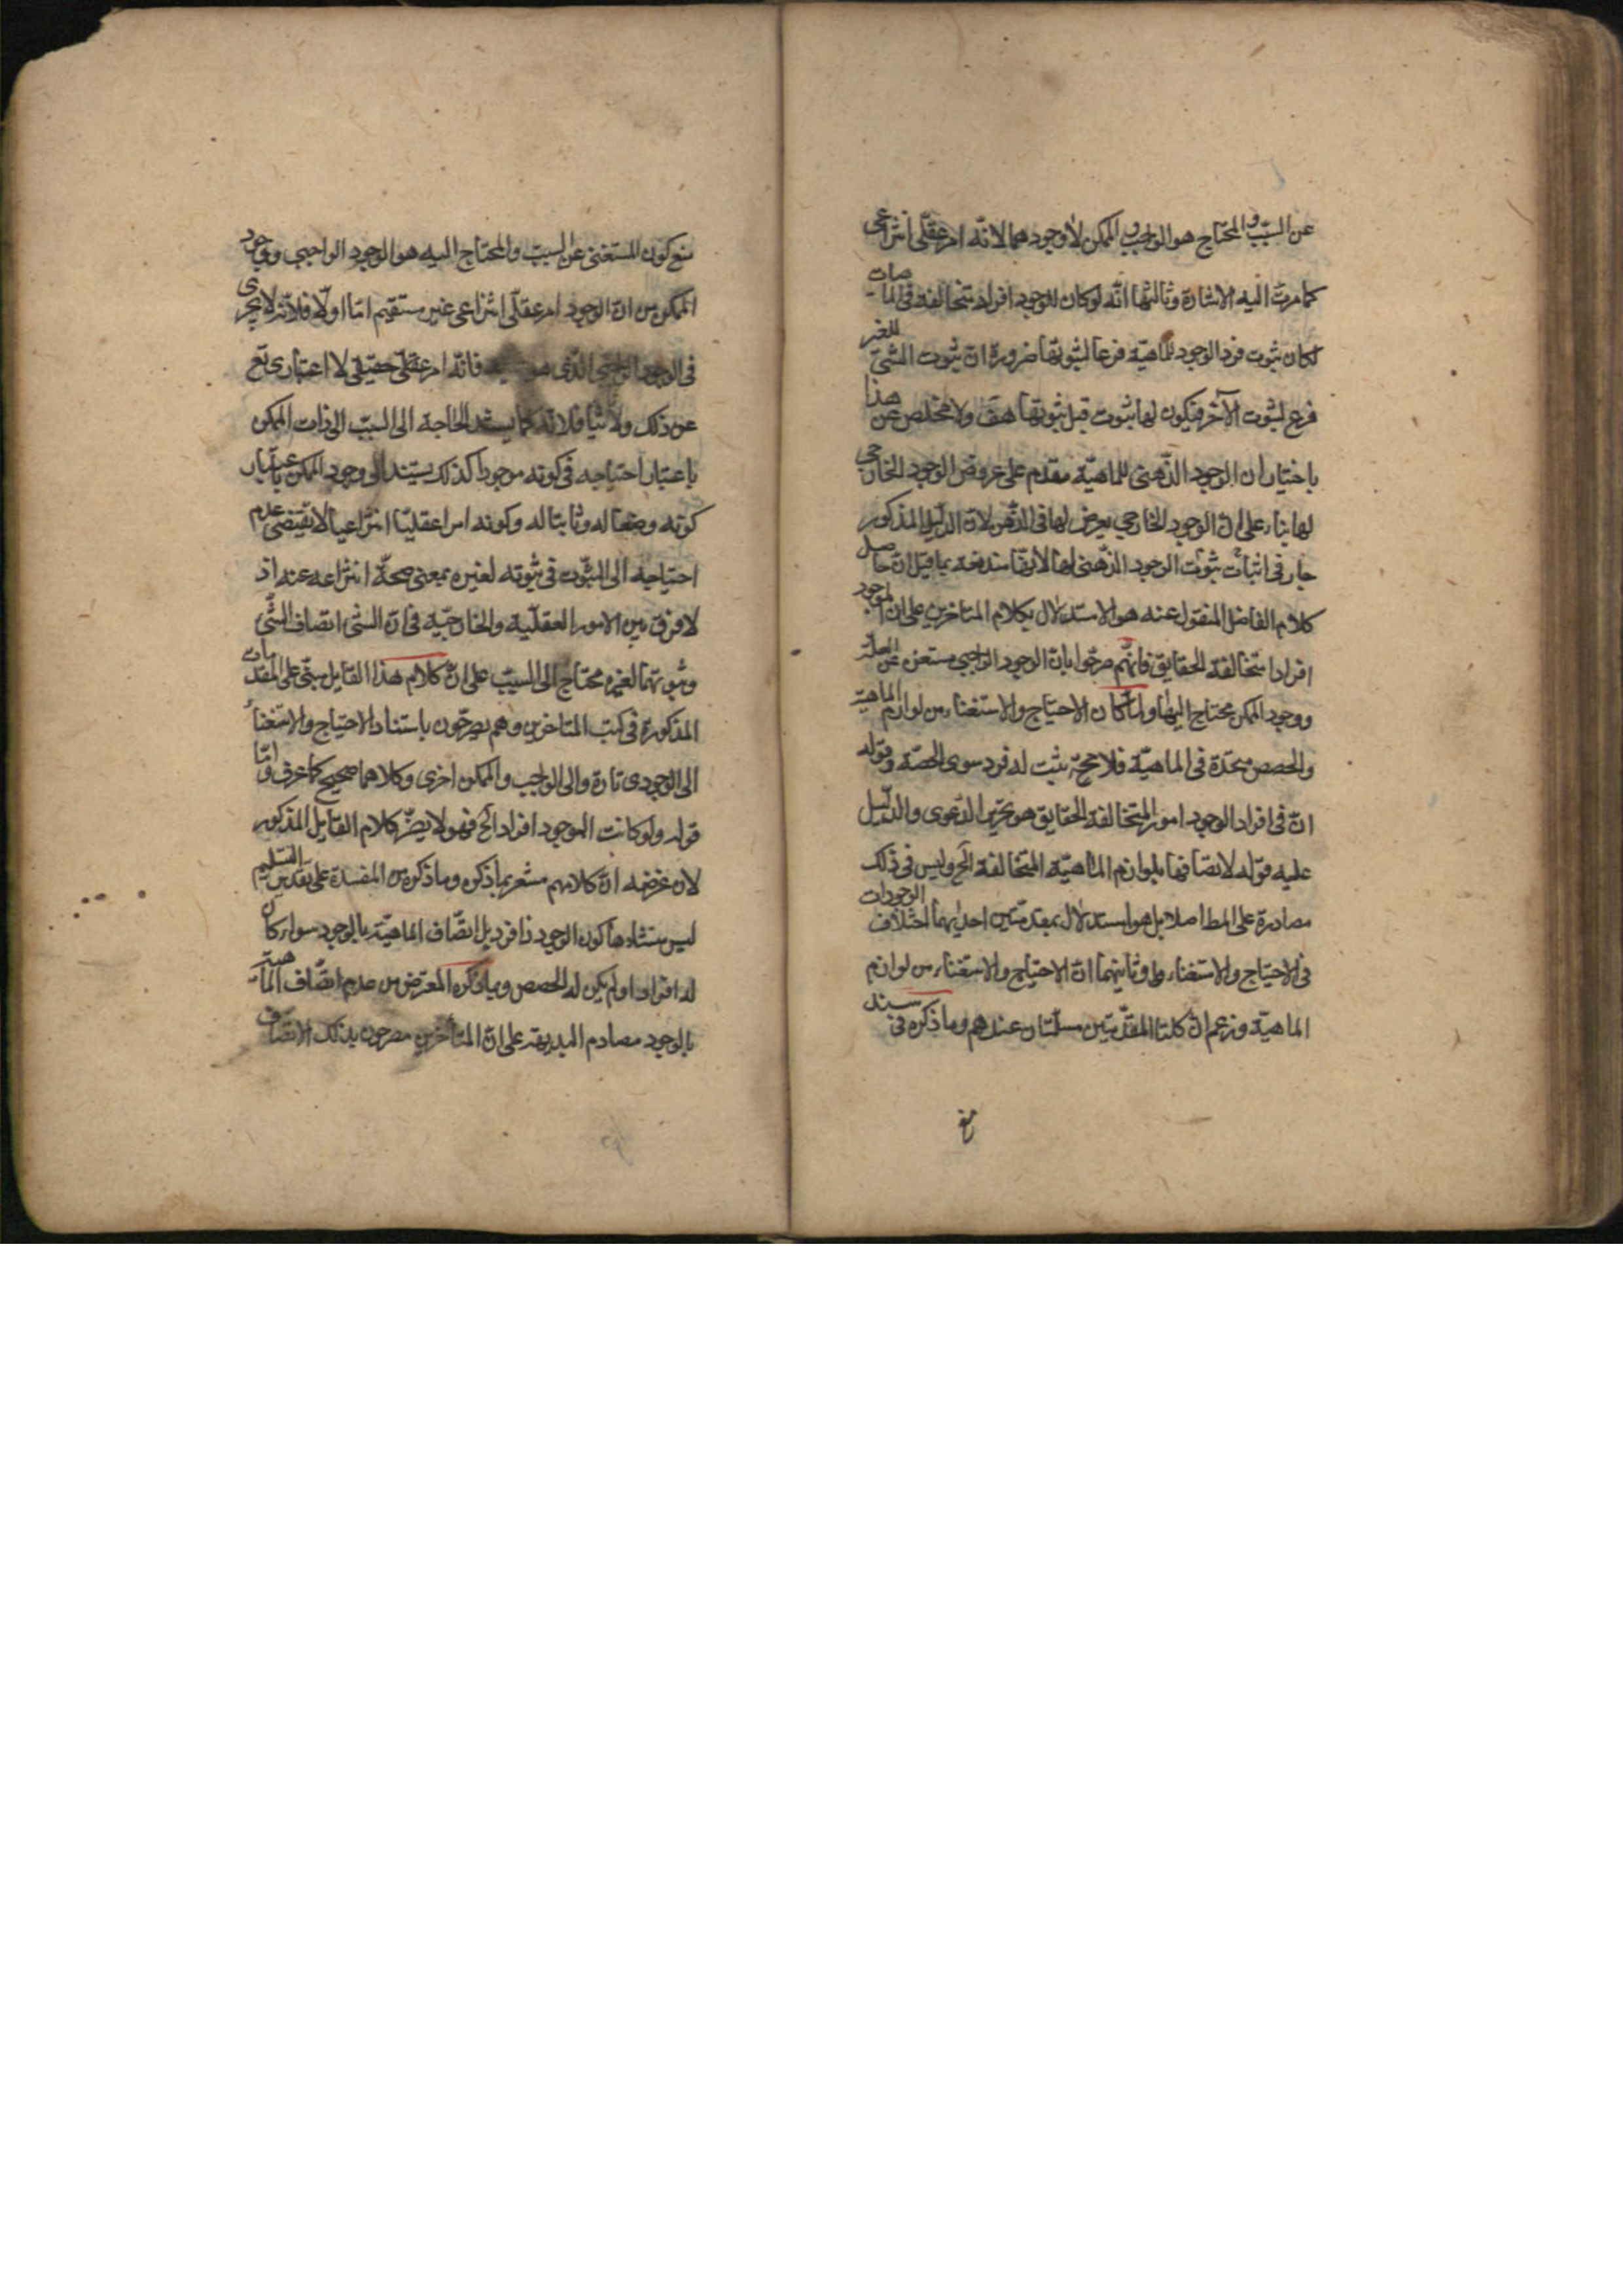 عن السبب والمحتاج هو الواجب والممكن لا وجودهما لانه امر عقلى انتزاعى
كما مرت اليه الاشارة وثالثها انه لو كان للوجود افراد متخالفة فى الماهيات
لكان ثبوت فرد الوجود للماهية فرعا لثبوتها ضرورة ان ثبوت الشئ للغير
فرع لثبوت الآخر فيكون لها ثبوت قبل ثبوتها هف ولا مخلص عن هذا
باختيار ان الوجود الذهنى للماهية مقدم على عروض الوجود الخارجى
لها بناء على ان الوجود الخارجى يعرض لها فى الذهن لان الدليل المذكور
جار فى اثبات ثبوت الوجود الذهنى لها لانها مندفعة بما قيل ان حاصل
كلام الفاضل المنقول عنه هو الاستدلال بكلام المتاخرين على ان للوجود
افرادا متخالفة الحقايق فانهم صرحوا بان الوجود الواجبى مستغن عن العلة
ووجود الممكن محتاج اليها ولما كان الاحتياج والاستغناء من لوازم الماهية
والحصص متحدة فى الماهية فلا محة يثبت له فرد سوى الحصة وقوله
ان فى افراد الوجود امور المتخالفة الحقايق هو تحرير الدعوى والدليل
عليه قوله لاتصافها بلوازم الماهية المتخالفة الخ وليس فى ذلك
مصادرة على المط اصلا بل هو استدلال بمقدمتين احديهما اختلاف الوجودات
فى الاحتياج والاستغناء وثانيتهما ان الاحتياج والاستغناء من لوازم
الماهية وزعم ان كلتا المقدمتين مسلمتان عندهم وما ذكره فى سند
منع كون المستغنى عن السبب والمحتاج اليه هو الوجود الواجبى ووجود
الممكن من ان الوجود امر عقلى انتزاعى غير مستقيم اما اولا فلانه لا يجرى
فى الوجود الواجبى الذى هو فانه امر عقلى حقيقى لا اعتبارى تع
عن ذلك واما ثانيا فلانه كما يستند الحاجة الى السبب الى ذات الممكن
باعتبار احتياجه فى كونه موجودا كذلك يستند الى وجود الممكن باعتبار
كونه وصفا له وثابتا له وكونه امرا عقليا انتزاعيا لا يقتضى عدم
احتياجه الى الثبوت فى ثبوته لغيره بمعنى صحة انتزاعه عنه اذ
لا فرق بين الامور العقلية والخارجية فى ان الشئ اتصاف الشئ
وثبوتهما لغيره محتاج الى السبب على ان كلام هذا القايل مبنى على المقدمات
المذكورة فى كتب المتاخرين وهم يصرحون باستناد الاحتياج والاستغناء
الى الوجودى تارة والى الواجب والممكن اخرى وكلاهما صحيح كما عرف واما
قوله ولو كانت للوجود افراد الخ فهو لا يضر كلام القايل المذكور
لان غرضه ان كلامهم مشعر بما ذكره وما ذكره من المفسدة على تقدير التسليم
ليس منشاءها كون الوجود ذا فرد بل اتصاف الماهية بالوجود سواء كان
له افراد او لم يكن له الحصص وما ذكره المعترض من عدم اتصاف الماهية
بالوجود مصادم للبديهة على ان المتأخرين مصرحون بذلك الاتصاف